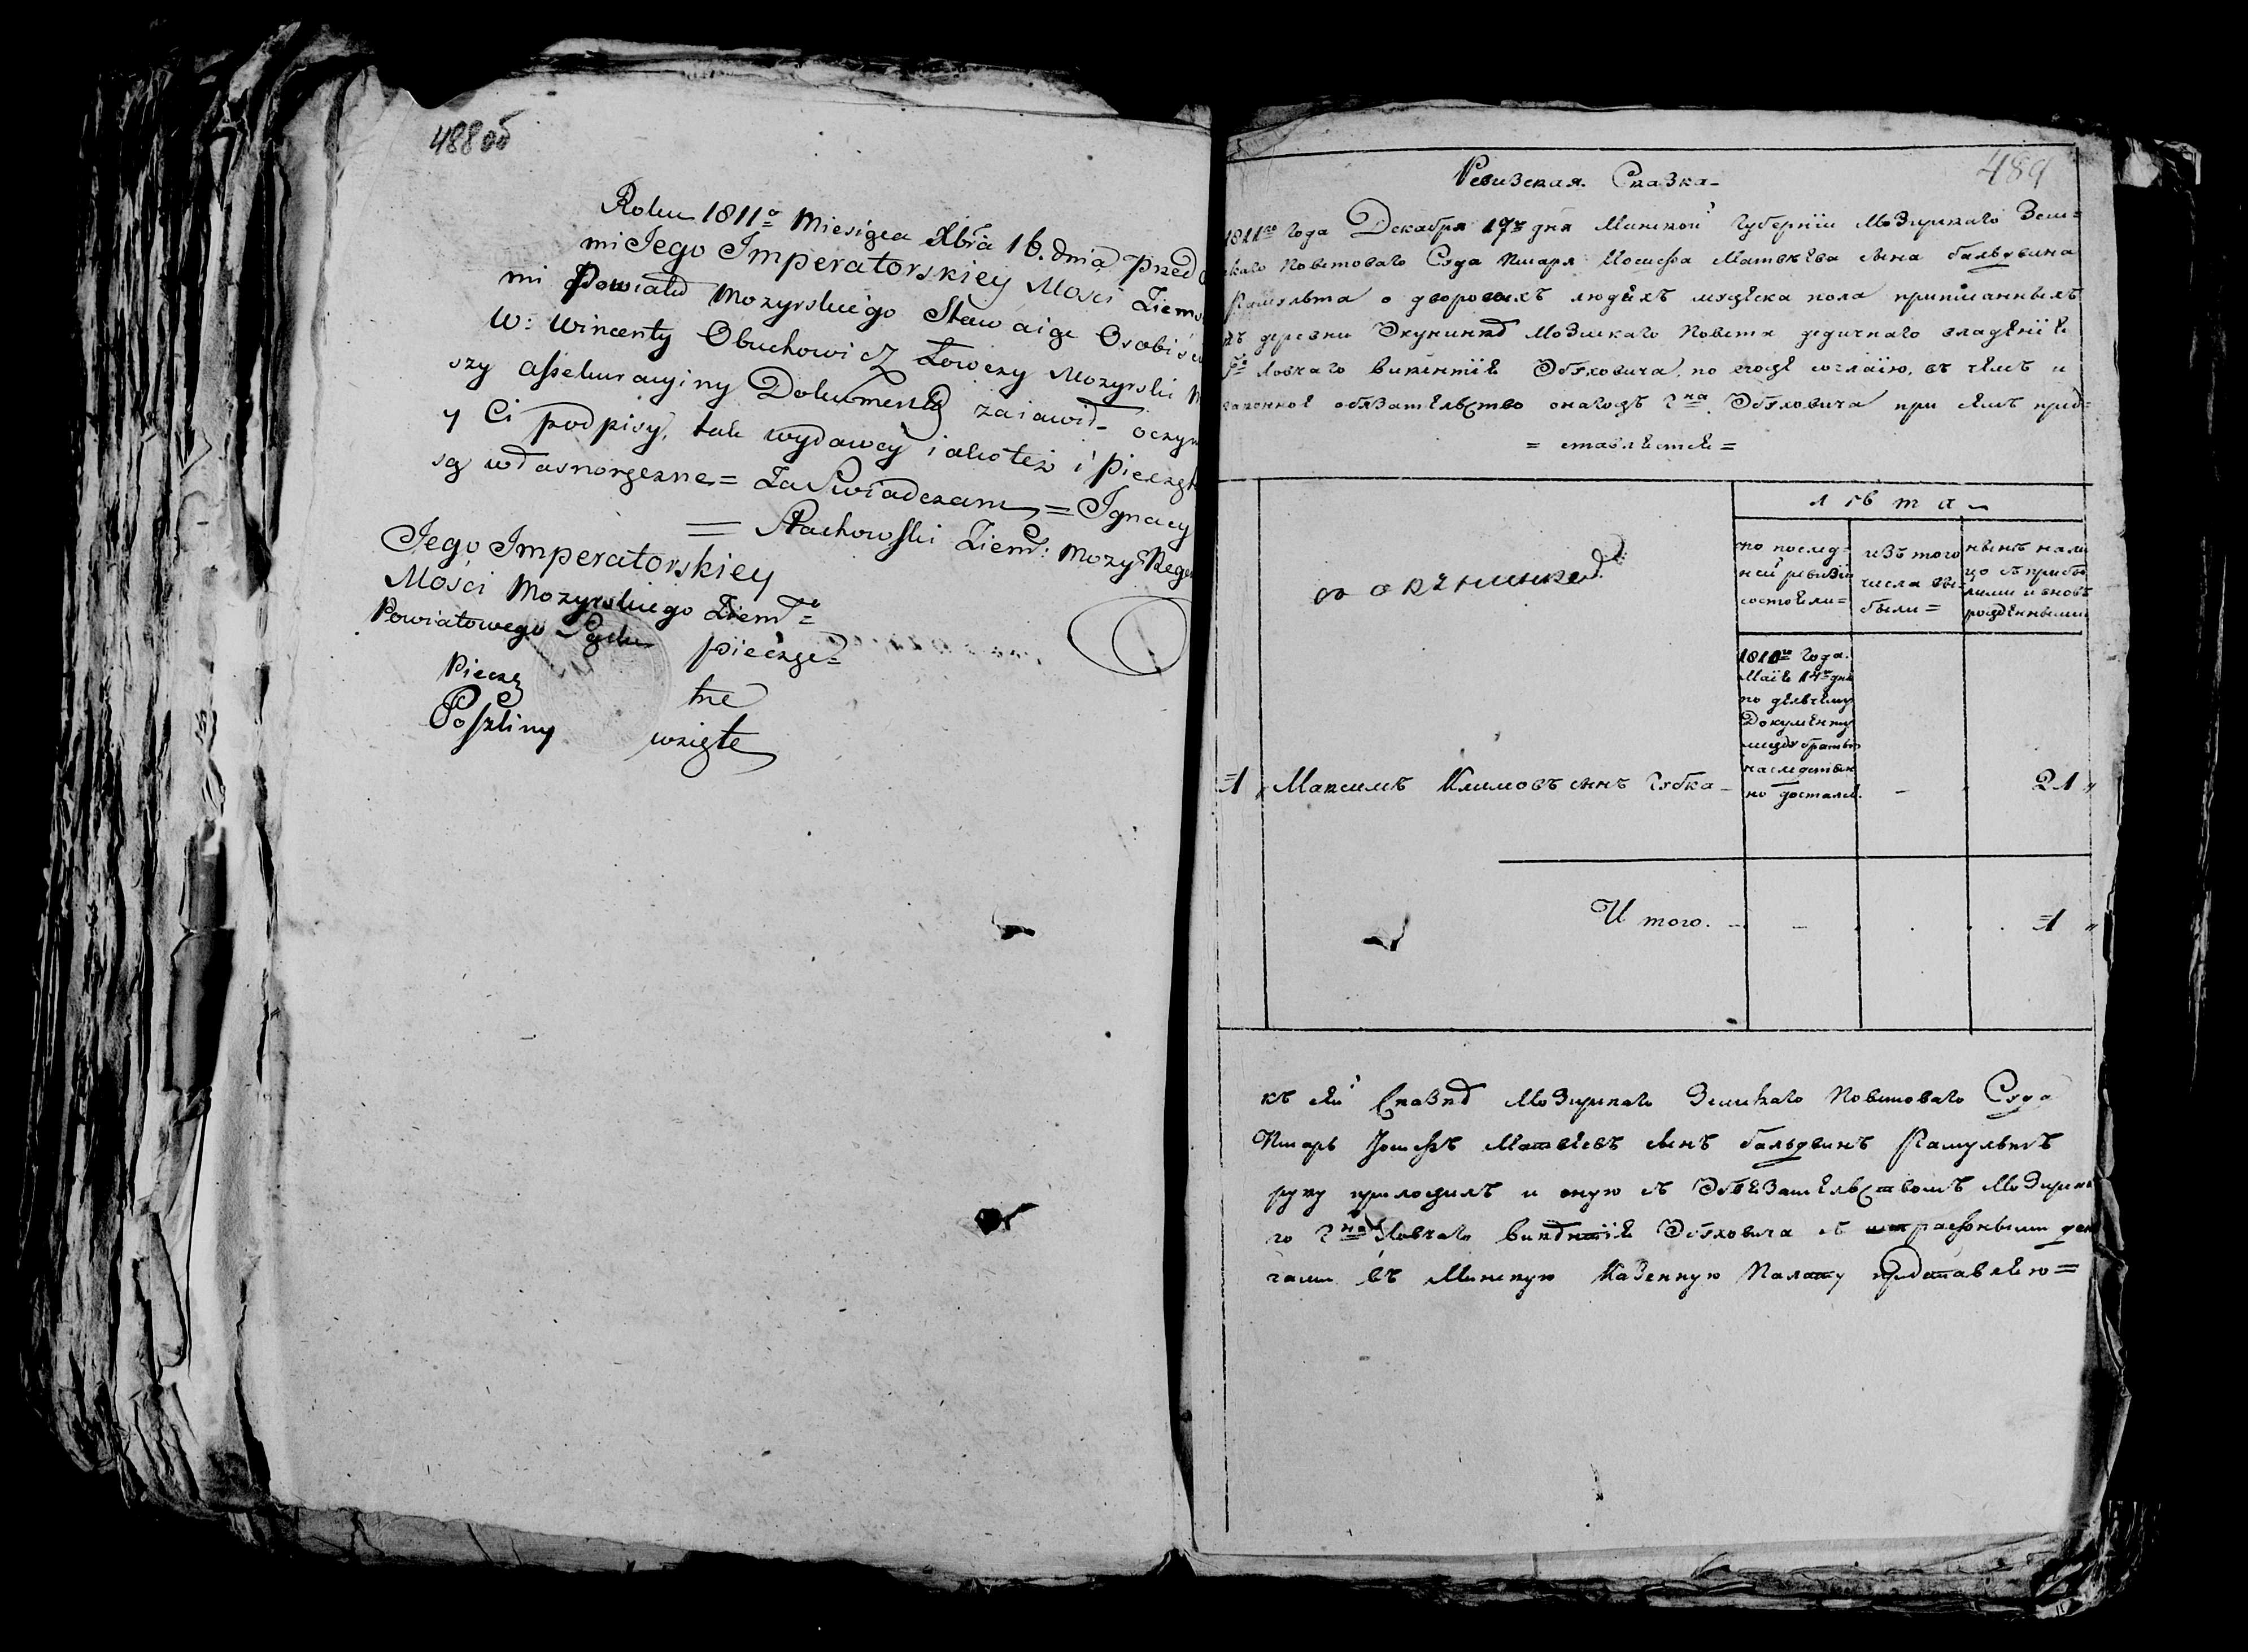 488 об
Roku 1811º Miesiąca Xbra 16. dnia przed
mi Jego Imperatorskiey Mości Ziem
mi Powiatu Mozyrskiego Stawaiąc Osobiś
W: Wincenty Obuchowicz Łowczy Mozyrski
szy assekuracyiny Dokument zaiawił oczyw
y Ci podpisy, tak wydawcy iako też i Pieczęt
są własnoręczne = Zaświadczam = Ignacy
= Stachowski Ziem: Mozyr Regen
Jego Imperatorskiey
Mości Mozyrskiego Ziemº
Powiatowego Sądu
Pieczę
pieczęt=
tne
Poszliny
wzięte
489
Ревизская Сказка
1811го Года Декабря 17го дня Минской Губерніи Мозирскаго Зем=
скаго Поветоваго Суда Писаря Иосифа Матвеева сына Бальдвина
Рамульта о дворовыхъ людехъ мужеска пола приписанныхъ
въ деревни Экунинке Мозискаго Повета дедичнаго владения
Ловчаго Викентіе Обуховича, по его согласію, въ чемъ и
законное обязательство онагожъ Гна Обуховича при семъ пред=
= ставляется =
лѣта
по послед=
ней ревизіи
состояли=
изъ того
числа вы=
были=
ныне нали
цо съ прибы
лыми и вновь
рожденными
в окунинке
1810го Года
Маiя 14го дня
по дельчему
Документу
между братьею
наследствен
но достался.
1 Максимъ Климовъ сынъ Губка 21
Итого. 1
къ сей Сказке Мозирскаго Земскаго Поветоваго Суда
Писарь Иосифъ Матвеевъ сынъ Бальдвинъ Рамультъ
руку приложилъ и оную съ Обязательствомъ Мозирска
го Гна Ловчаго Викентія Обуховича съ штрафными ден
гами въ Минскую Казенную Палату представляю=